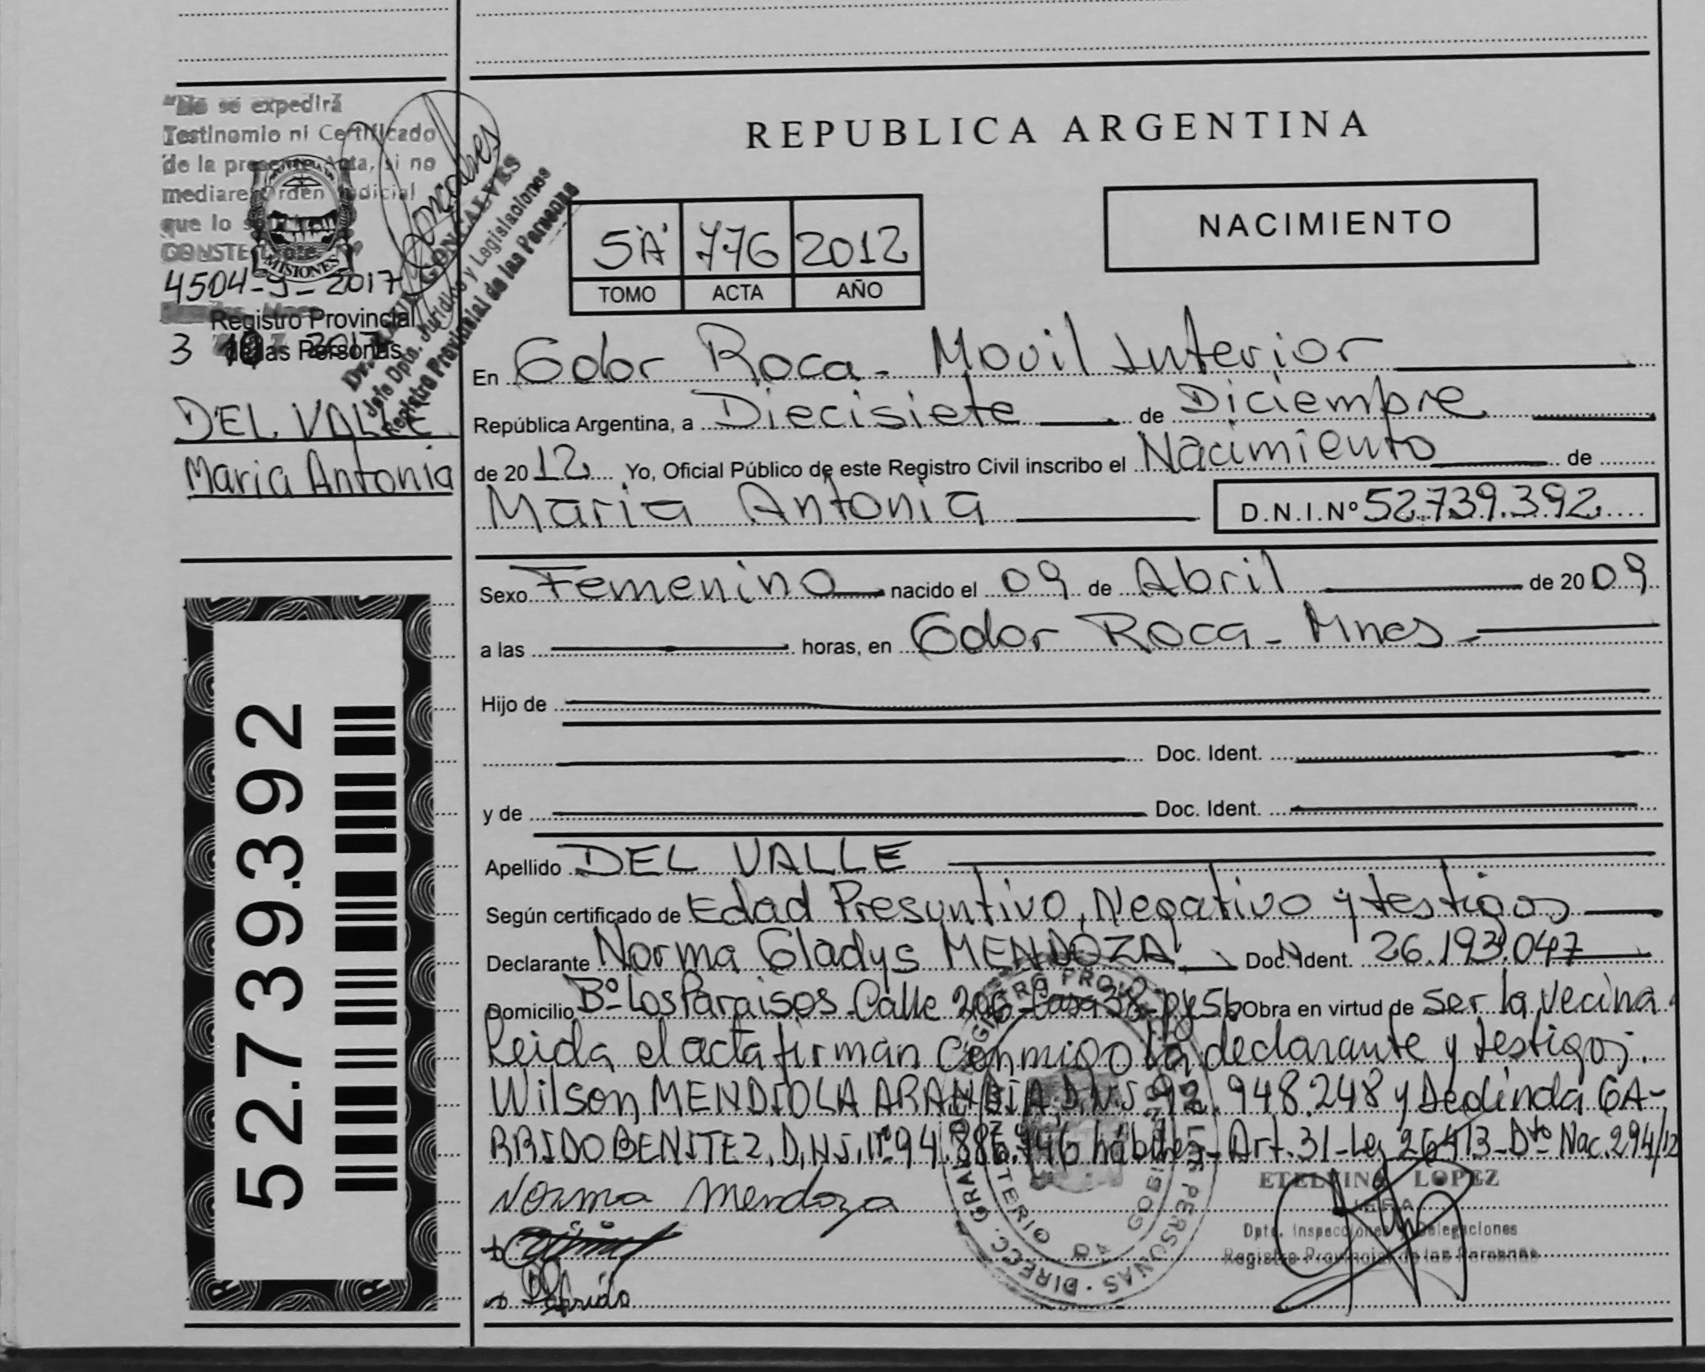 "No se expedirá
Testinomio ni Certificado
de la presente Acta, si no
mediare Orden Judicial
que lo
CONSTE
MISIONES
4504-9-2017
Registro Provincial
de las Personas
3 10 2017
GONCALVES
Jefe Dpto. Jurídico y Legislaciones
Registro Provincial de las Personas
DEL VALLE
Maria Antonia
52.739.392
REPUBLICA ARGENTINA
5"A" 776 2012
TOMO ACTA AÑO
NACIMIENTO
En Gdor Roca - Movil Interior
República Argentina, a Diecisiete de Diciembre
de 2012 Yo, Oficial Público de este Registro Civil inscribo el Nacimiento de
Maria Antonia D.N.I.Nº 52.739.392
Sexo Femenino nacido el 09 de Abril de 2009
a las horas, en Gdor Roca - Mnes -
Hijo de
Doc. Ident.
y de Doc. Ident.
Apellido DEL VALLE
Según certificado de Edad Presuntivo, Negativo y testigos
Declarante Norma Gladys MENDOZA Doc. Ident. 26.193.047
Domicilio Bº Los Paraisos - Calle 206 - Casa 38 - Obra en virtud de ser la vecina.
Leida el acta firman conmigo la declarante y testigos:
Wilson MENDIOLA D.N.I. 92.948.248 y Deolinda GA-
RRIDO BENITEZ, D.N.I. Nº 94.886.946 hábiles - Art. 31 - Ley 26413 - Dto Nac. 294/12
Norma Mendoza
Garrido
ETELVINA LOPEZ
JEFA
Dpto. Inspecciones y Delegaciones
Registro Provincial de las Personas